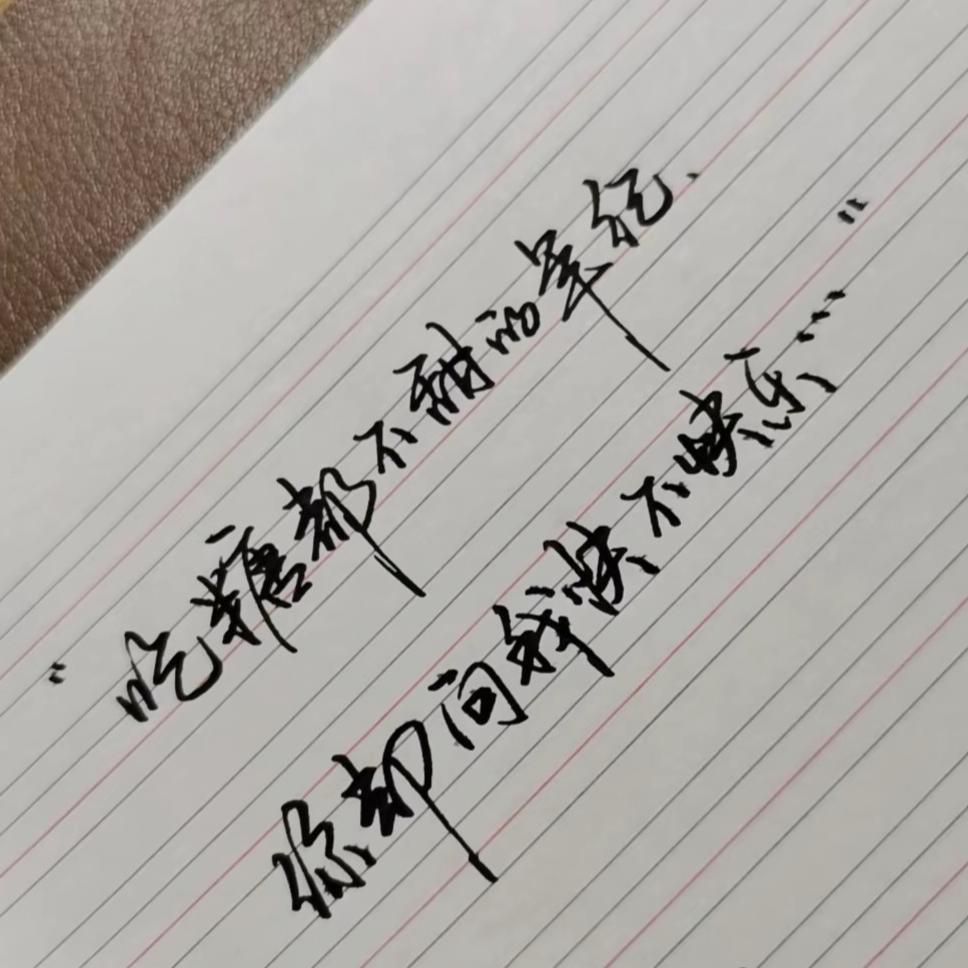 “吃糖都不甜的年纪.
你却问我快不快乐……”